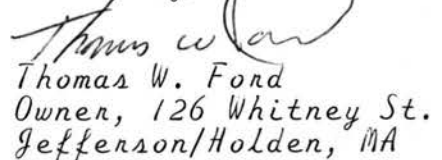 Thomas W. Ford
Thomas W. Ford
Owner, 126 Whitney St.
Jefferson/Holden, MA